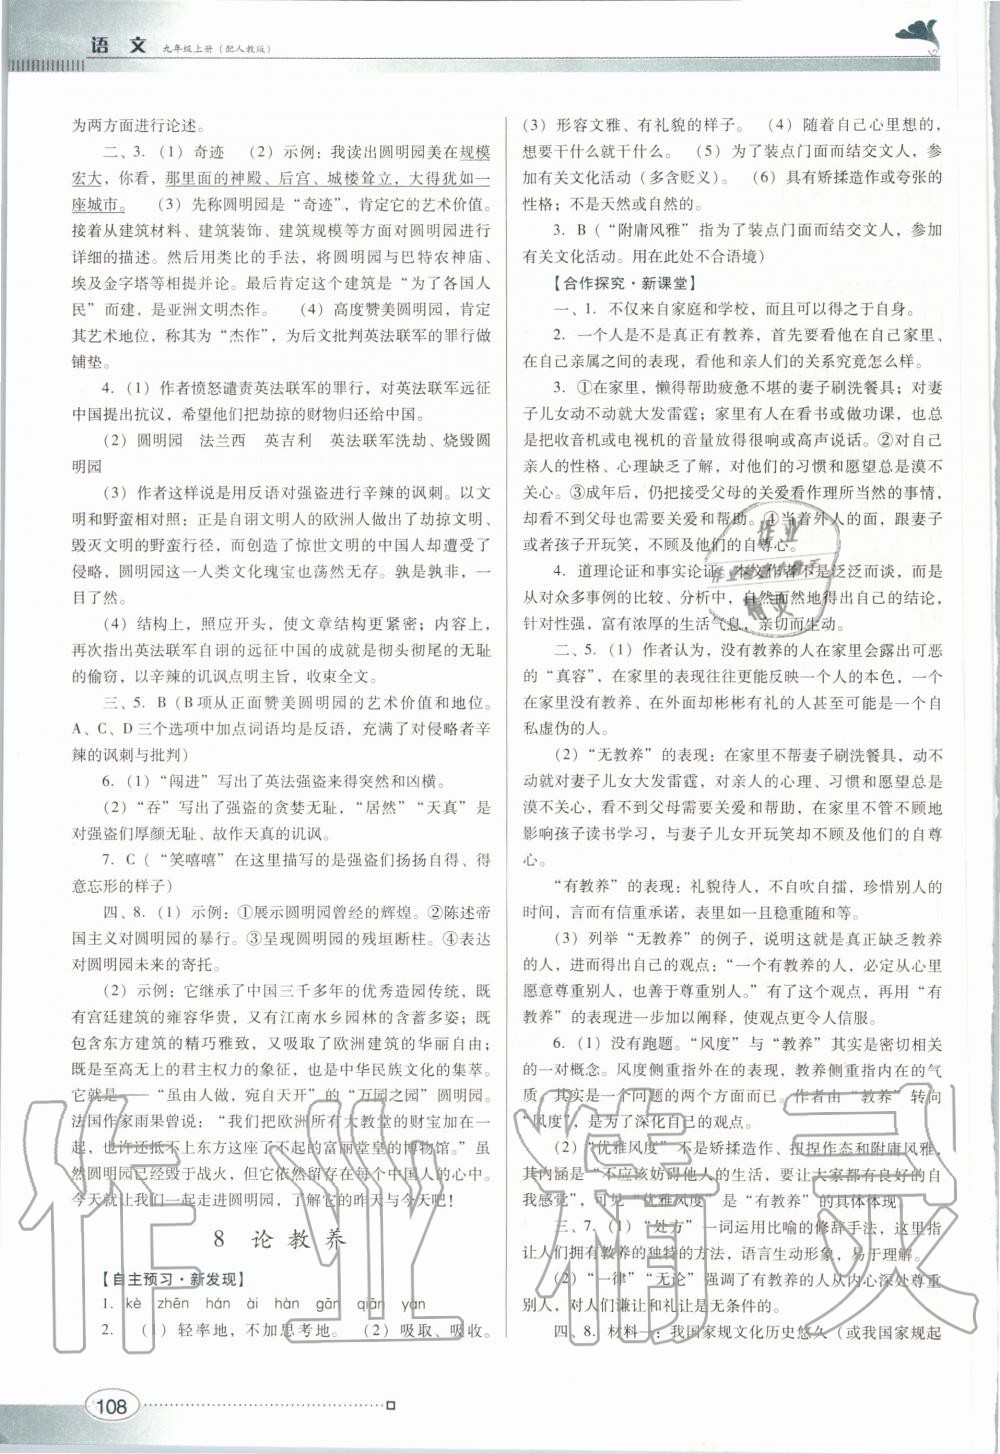 语 文 九年级上册（配人教版）
为两方面进行论述。
二、3.（1）奇迹 （2）示例：我读出圆明园美在规模
宏大，你看，那里面的神殿、后宫、城楼耸立，大得犹如一
座城市。 （3）先称圆明园是“奇迹”，肯定它的艺术价值。
接着从建筑材料、建筑装饰、建筑规模等方面对圆明园进行
详细的描述。然后用类比的手法，将圆明园与巴特农神庙、
埃及金字塔等相提并论。最后肯定这个建筑是“为了各国人
民”而建，是亚洲文明杰作。 （4）高度赞美圆明园，肯定
其艺术地位，称其为“杰作”，为后文批判英法联军的罪行做
铺垫。
4.（1）作者愤怒谴责英法联军的罪行，对英法联军远征
中国提出抗议，希望他们把劫掠的财物归还给中国。
（2）圆明园 法兰西 英吉利 英法联军洗劫、烧毁圆
明园
（3）作者这样说是用反语对强盗进行辛辣的讽刺。以文
明和野蛮相对照：正是自诩文明人的欧洲人做出了劫掠文明、
毁灭文明的野蛮行径，而创造了惊世文明的中国人却遭受了
侵略，圆明园这一人类文化瑰宝也荡然无存。孰是孰非，一
目了然。
（4）结构上，照应开头，使文章结构更紧密；内容上，
再次指出英法联军自诩的远征中国的成就是彻头彻尾的无耻
的偷窃，以辛辣的讥讽点明主旨，收束全文。
三、5. B（B项从正面赞美圆明园的艺术价值和地位。
A、C、D三个选项中加点词语均是反语，充满了对侵略者辛
辣的讽刺与批判）
6.（1）“闯进”写出了英法强盗来得突然和凶横。
（2）“吞”写出了强盗的贪婪无耻，“居然”“天真”是
对强盗们厚颜无耻、故作天真的讥讽。
7. C（“笑嘻嘻”在这里描写的是强盗们扬扬自得、得
意忘形的样子）
四、8.（1）示例：①展示圆明园曾经的辉煌。②陈述帝
国主义对圆明园的暴行。③呈现圆明园的残垣断柱。④表达
对圆明园未来的寄托。
（2）示例：它继承了中国三千多年的优秀造园传统，既
有宫廷建筑的雍容华贵，又有江南水乡园林的含蓄多姿；既
包含东方建筑的精巧雅致，又载录了欧洲建筑的华丽自由；
既是至高无上的君主权力的象征，也是中华民族文化的集萃。
它就是——“虽由人做，宛自天开”的“万园之园”圆明园。
法国作家雨果曾说：“我们把欧洲所有大教堂的财宝加在一
起，也许还抵不上东方这座了不起的富丽堂皇的博物馆。”虽
然圆明园已经毁于战火，但它依然留存在每个中国人的心中。
今天就让我们一起走进圆明园，了解它的昨天与今天吧！
8 论教养
【自主预习·新发现】
1. kè zhēn hán ài hàn gān qiān yán
2. （1）轻率地，不加思考地。（2）吸取、吸收。
（3）形容文雅、有礼貌的样子。 （4）随着自己心里想的，
想要干什么就干什么。 （5）为了装点门面而结交文人，参
加有关文化活动（多含贬义）。 （6）具有矫揉造作或夸张的
性格；不是天然或自然的。
3. B（“附庸风雅”指为了装点门面而结交文人，参加
有关文化活动。用在此处不合语境）
【合作探究·新课堂】
一、1. 不仅来自家庭和学校，而且可以得之于自身。
2. 一个人是不是真正有教养，首先要看他在自己家里、
在自己亲属之间的表现，看他和亲人们的关系究竟怎么样。
3. ①在家里，懒得帮助疲惫不堪的妻子刷洗餐具；对妻
子儿女动不动就大发雷霆；家里有人在看书或做功课，也总
是把收音机或电视机的音量放得很响或高声说话。②对自己
亲人的性格、心理缺乏了解，对他们的习惯和愿望总是漠不
关心。③成年后，仍把接受父母的关爱看作理所当然的事情，
却看不到父母也需要关爱和帮助。④当着外人的面，跟妻子
或者孩子开玩笑，不顾及他们的自尊心。
4. 道理论证和事实论证。本文作者不是泛泛而谈，而是
从对众多事例的比较、分析中，自然而然地得出自己的结论，
针对性强，富有浓厚的生活气息，亲切而生动。
二、5.（1）作者认为，没有教养的人在家里会露出可恶
的“真容”，在家里的表现往往更能反映一个人的本色，一个
在家里没有教养、在外面却彬彬有礼的人甚至可能是一个自
私虚伪的人。
（2）“无教养”的表现：在家里不帮妻子刷洗餐具，动不
动就对妻子儿女大发雷霆，对亲人的心理、习惯和愿望总是
漠不关心，看不到父母需要关爱和帮助，在家里不管不顾地
影响孩子读书学习，与妻子儿女开玩笑却不顾及他们的自尊
心。
“有教养”的表现：礼貌待人，不自吹自擂，珍惜别人的
时间，言而有信重承诺，表里如一且稳重随和等。
（3）列举“无教养”的例子，说明这就是真正缺乏教养
的人，进而得出自己的观点：“一个有教养的人，必定从心里
愿意尊重别人，也善于尊重别人。”有了这个观点，再用“有
教养”的表现进一步加以阐释，使观点更令人信服。
6.（1）没有跑题。“风度”与“教养”其实是密切相关
的一对概念。风度侧重指向于外在的表现，教养侧重于内在
气质，其实是一个问题的两个方面。作者由“教养”转向
“风度”，是为了深化自己的观点。
（2）“优雅风度”不是矫揉造作、扭捏作态和附庸风雅，
其内涵是“不应该妨碍他人的生活，要让大家都有良好的自
我感觉”，可见“优雅风度”是“有教养”的具体体现。
三、7.（1）“处方”一词运用比喻的修辞手法，这里指
让人们拥有教养的独特的方法，语言生动形象，易于理解。
（2）“一律”“无论”强调了有教养的人从内心深处尊重
别人，对人们谦让和礼让是无条件的。
四、8. 材料一：我国家规文化历史悠久（或我国家规起
108
作业
精灵
作业精灵